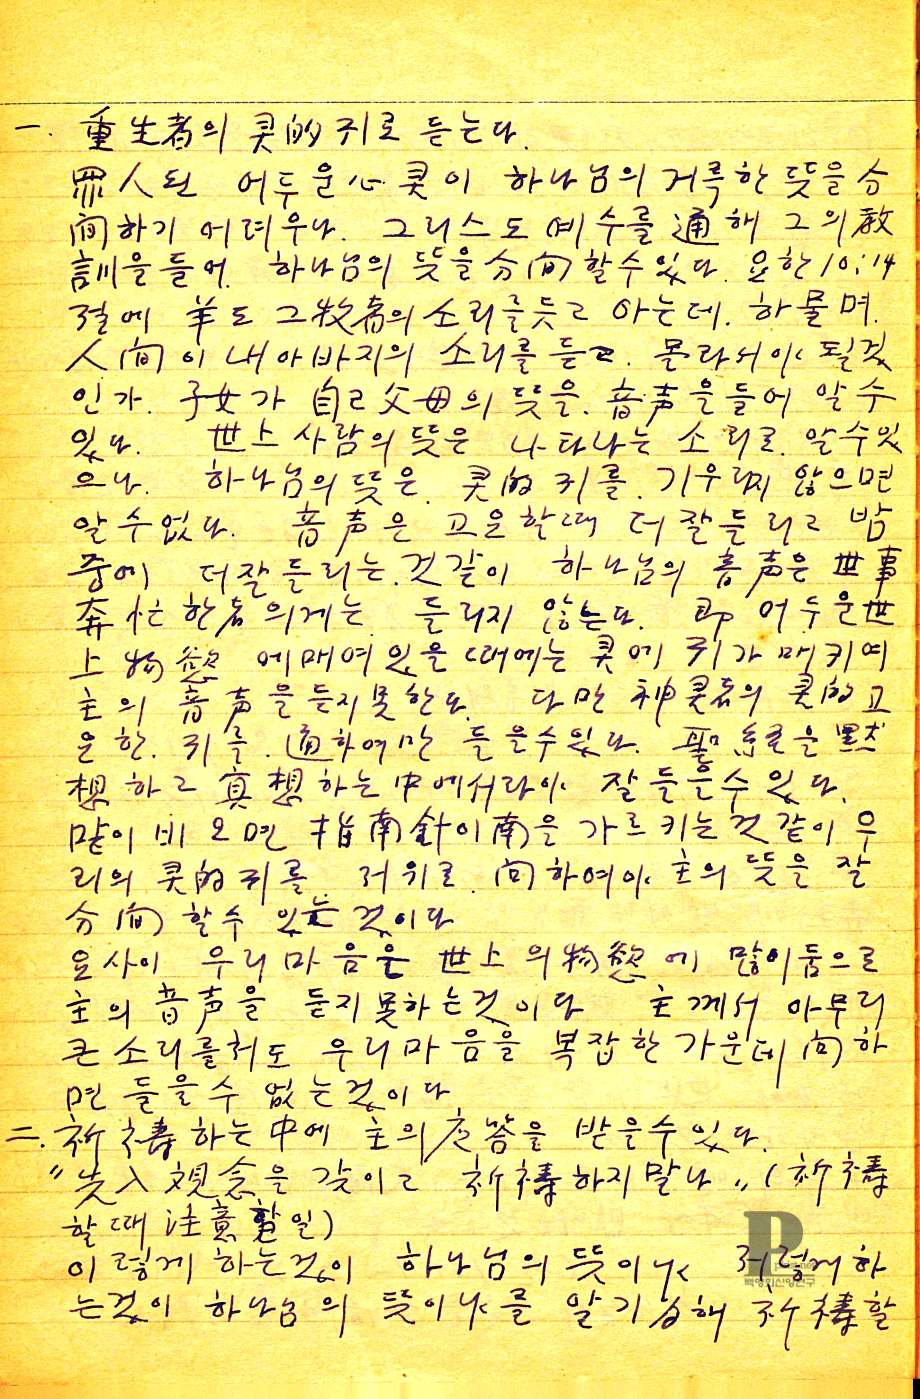 一. 重生者의 灵的 귀로 듣는다.
罪人된 어두운 心灵이 하나님의 거룩한 뜻을 分
间하기 어려우나. 그리스도 예수를 通해 그의 教
訓을 들어. 하나님의 뜻을 分间할수 있다. 요한 10:14
절에 羊도 그 牧者의 소리를 듣고 아는데. 하물며.
人间이 내 아바지의 소리를 듣고. 몰라서야 될것
인가. 子女가 自己 父母의 뜻을. 音声을 들어 알수
있다. 世上 사람의 뜻은 나타나는 소리로. 알수있
으나. 하나님의 뜻은. 灵的 귀를. 기우리지 않으면
알수없다. 音声은 고요할때 더 잘들리고 밤
중에 더 잘 들리는. 것같이 하나님의 音声은 世事
奔忙한 者의게는 들리지 않는다. 即 어두운 世
上 物慾에 매여있을 때에는 灵에 귀가 매키여
主의 音声을 듣지 못한다. 다만 神灵者의 灵的 고
요한. 귀를. 通하여만 들을수있다. 聖経을 默
想하고 真想하는 中에서라야 잘 들을수 있다.
많이 비오면 指南針이 南을 가르키는 것같이 우
리의 灵的 귀를. 저 위로. 向하여야 主의 뜻을 잘
分间할수 있는 것이다
요사이 우리 마음은 世上의 物慾에 많이 둠으로
主의 音声을 듣지 못하는것이다 主께서 아무리
큰 소리를 처도 우리 마음을 복잡한 가운데 向하
면 들을수 없는것이다
二. 祈禱하는 中에 主의 应答을 받을수 있다.
"先入观念을 갖이고 祈禱하지말나"(祈禱
할때 注意할일)
이렇게 하는것이 하나님의 뜻이냐 저렇게 하
는것이 하나님의 뜻이냐를 알기 위해 祈禱할
P
백영희신앙연구